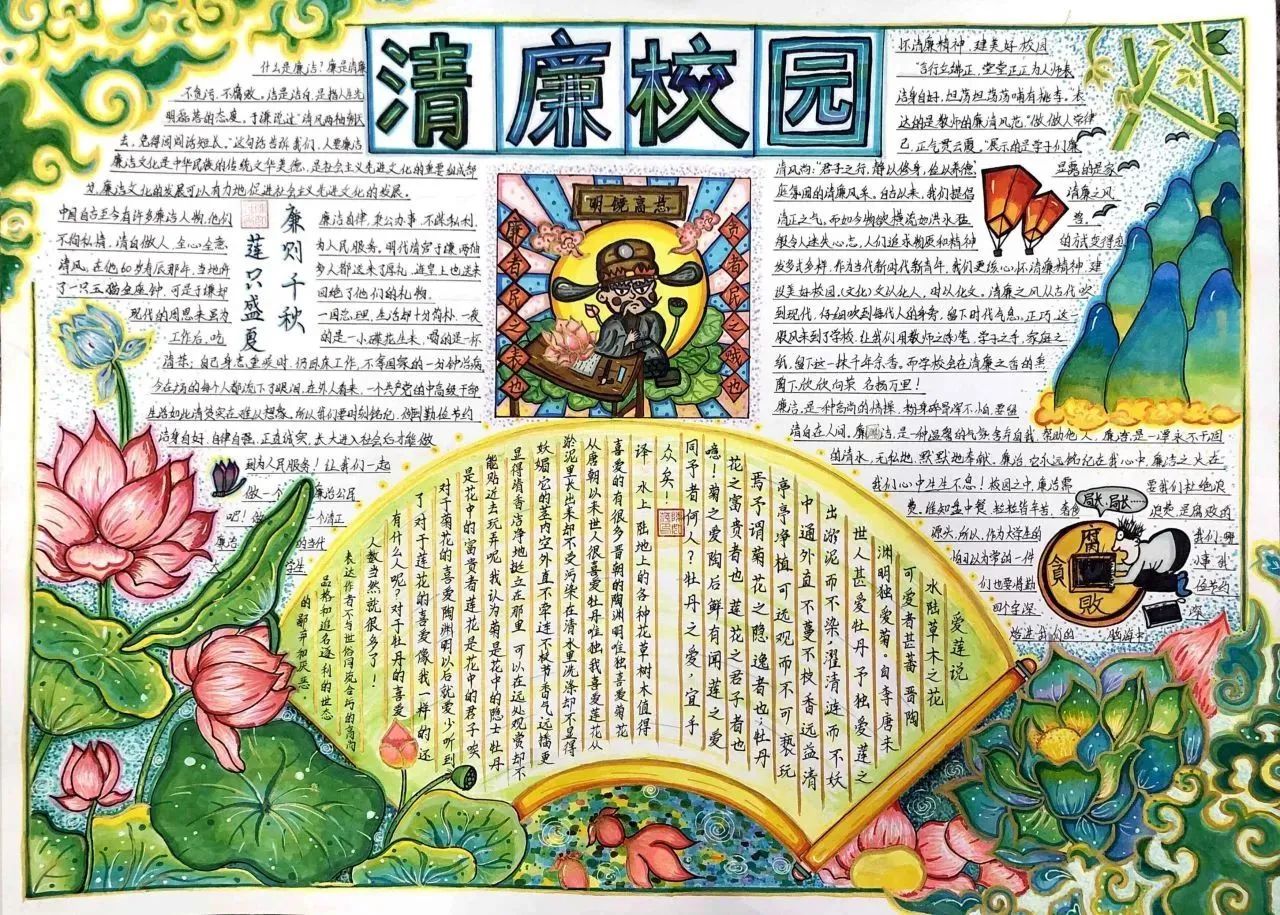 清廉校园
什么是廉洁？廉是清廉
不贪污，不腐败。洁是洁白，是指人光
明磊落的态度。于谦说过"清风两袖朝天
去，免得闾阎话短长。"这句话告诉我们，人要廉洁
廉洁文化是中华民族的传统文华美德，是社会主义先进文化的重要组成部
分，廉洁文化的发展可以有力地促进社会主义先进文化的发展。
中国自古至今有许多廉洁人物，他们
不徇私情，清白做人，全心全意
清风。在他60岁寿辰那年，当地府
了一只玉猫金座钟，可是于谦却
现代的周恩来虽为
工作后，吃
廉则千秋
莲只盛夏
廉洁自律，秉公办事，不谋私利，
为人民服务。明代清官于谦，两袖
多人都送来了厚礼，连皇上也送来
回绝了他们的礼物。
一国总理，生活却十分简朴，一夜
的是一小碟花生米，喝的是一杯
清茶；自己身患重疾时，仍旧床工作，不管国家的一分钟治病，
今在场的每个人都流下了眼泪，在外人看来，一个共产党的中高级干部
生活如此清贫实在难以想像，所以我们要时刻铭记，做到勤俭节约
洁身自好，自律自强，正直诚实，长大进入社会后才能做
到为人民服务！让我们一起
做一个
廉洁公民
吧！做
一个清正
廉洁
的当代
学生
明镜高悬
廉者民之表也
贪者民之贼也
怀清廉精神，建美好校园
"言行立端正，堂堂正正为人师表
洁身自好，坦荡坦荡荡哺育桃李。"表
达的是教师的廉清风范。"做人做学律
己，正气贯云霄。"展示的是学子们廉
清风尚；"君子之行，静以修身，俭以养德，
显露的是家
庭氛围的清廉风采。自古以来，我们提倡
清廉之风
清正之气，而如今物欲横流如洪水猛
兽，
般令人迷失心志，人们追求物质和精神
的方式变得越
发多式多样，作为当代新时代新青年，我们更该心怀清廉精神，建
设美好校园。(文化)文以化人，时以化文。清廉之风从古代吹
到现代，仔细吹到每代人的身旁，留下时代气息，正巧，这一
股风来到了学校，让我们用教师之师笔，学子之手，家庭之
纸，留下这一抹千年余香，而学校会在清廉之香的熏
陶下欣欣向荣，名扬万里！
廉洁，是一种高尚的情操，粉身碎骨浑不怕，要留
清白在人间。廉洁，是一种温馨的气氛，舍弃自我，帮助他人，廉洁，是一潭永不干涸
的清水，无私地，默默地奉献，廉洁，它永远铭记在我心中，廉洁之火在
我们心中生生不息！校园之中，廉洁需
要我们杜绝浪
费，谁知盘中餐，粒粒皆辛苦，
浪费是腐败的
源头，所以，作为大学生的
我们，哪
怕因以为常的一件
小事，我
们也要将勤
俭节约
四个字深
深
局长，局长……
腐
贪
败
爱莲说
水陆草木之花
可爱者甚蕃晋陶
渊明独爱菊·自李唐来
世人甚爱牡丹予独爱莲之
出淤泥而不染，濯清涟而不妖
中通外直不蔓不枝香远益清
亭亭净植可远观而不可亵玩
焉予谓菊花之隐逸者也；牡丹
花之富贵者也莲花之君子者也
噫！菊之爱陶后鲜有闻莲之爱
同予者何人？牡丹之爱，宜乎
众矣！
译 水上陆地上的各种花草树木值得
喜爱的有很多晋朝的陶渊明唯独喜爱菊花
从唐朝以来世人很喜爱牡丹唯独我喜爱莲花从
淤泥里长出来却不受沔染在清水里洗涤却不显得
妖媚它的茎内空外直不牵连不枝节香气远播更
显得清香洁净地挺立在那里 可以在远处观赏却不
能贴近去玩弄呢我认为菊是花中的隐士牡丹
是花中的富贵者莲花是花中的君子唉
对于菊花的喜爱陶渊明以后就爱少听到
了对于莲花的喜爱像我一样的还
有什么人呢？对于牡丹的喜爱
人数当然就很多了！
表达作者不与世俗同流合污的高尚
品格和追名逐利的世态
的鄙节和厌恶